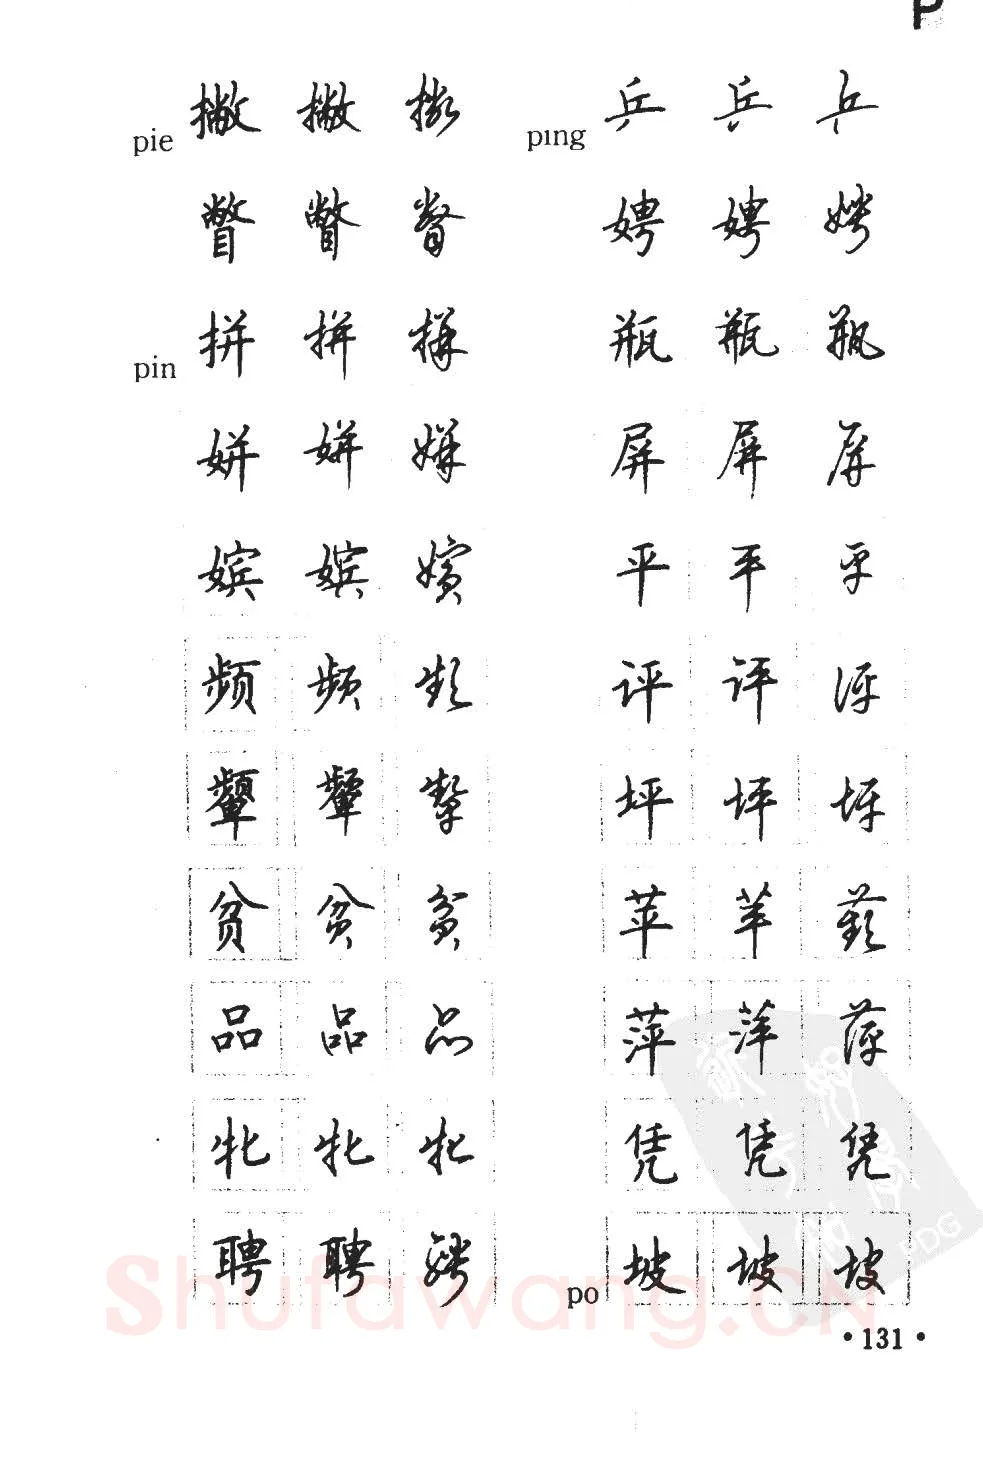 P
pie 撇 撇 撇
瞥 瞥 瞥
pin 拼 拼 拼
姘 姘 姘
嫔 嫔 嫔
频 频 频
颦 颦 颦
贫 贫 贫
品 品 品
牝 牝 牝
聘 聘 聘
ping 乒 乒 乒
娉 娉 娉
瓶 瓶 瓶
屏 屏 屏
平 平 平
评 评 评
坪 坪 坪
苹 苹 蘋
萍 萍 萍
凭 凭 凭
po 坡 坡 坡
Shufawang.CN
PDG
·131·